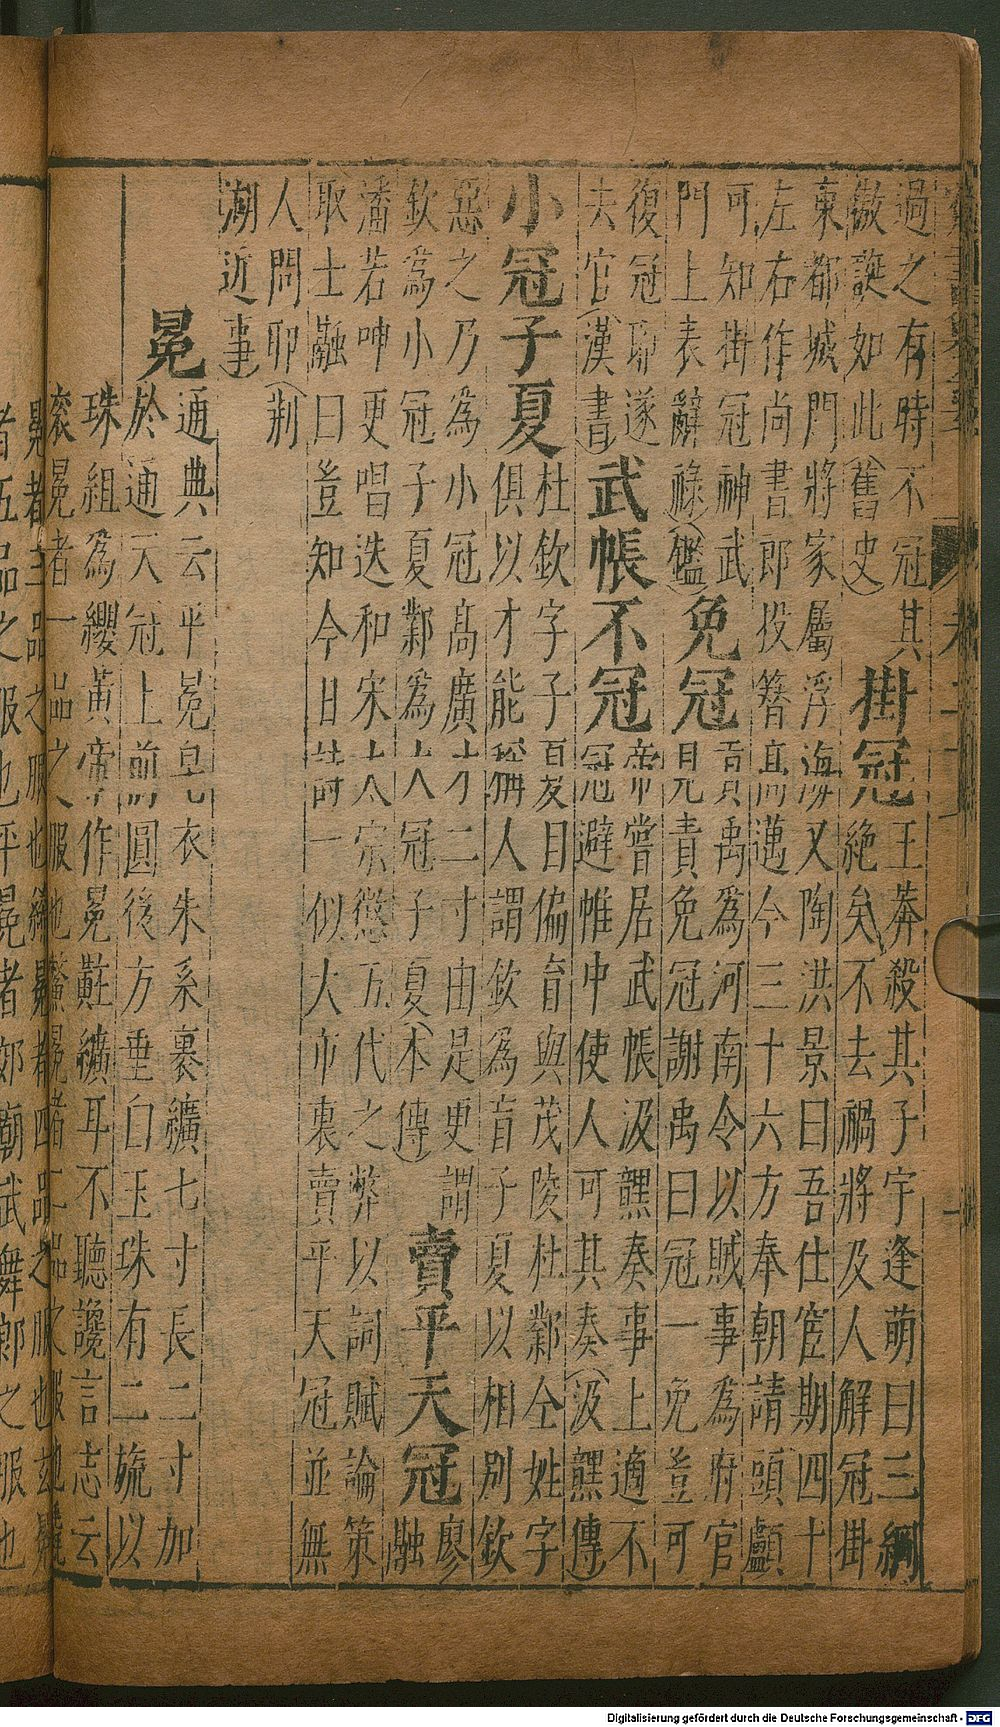 過之有時不冠其
傲誕如此(舊史)
掛冠
王莽殺其子宇逢萌曰三綱
絶矣不去禍將及人解冠掛
東都城門將家屬浮海又陶洪景曰吾仕宦期四十
左右作尚書郎投簪高邁今三十六方奉朝請頭顱
可知掛冠神武
門上表辭祿(鑑)
免冠
貢禹爲河南令以賊事爲府官
見責免冠謝禹曰冠一免豈可
復冠耶遂
去官(漢書)
武帳不冠
帝嘗居武帳汲黯奏事上適不
冠避帷中使人可其奏(汲黯傳)
小冠子夏
杜欽字子夏目偏盲與茂陵杜鄴仝姓字
俱以才能稱人謂欽爲盲子夏以相別欽
惡之乃爲小冠高廣才二寸由是更謂
欽爲小冠子夏鄴爲大冠子夏(本傳)
賣平天冠
廖
融
潘若呻更唱迭和宋太宗懲五代之弊以詞賦論策
取士融曰豈知今日詩一似大市裏賣平天冠並無
人問耶(荆
湖近事)
冕
通典云平冕皁衣朱系裏纊七寸長二寸加
於通天冠上前圓後方垂白玉珠有二旒以
珠組爲纓黄帝作冕黈纊耳不聽讒言志云
衮冕者一品之服也鷩冕者二品之服也毳
冕者三品之服也絺冕者四品之服也玄冕
者五品之服也平冕者郊廟武舞郎之服也
Digitalisierung gefördert durch die Deutsche Forschungsgemeinschaft - DFG